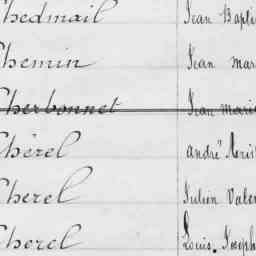 Chedmail Jean Bapti
Chemin Jean mar
Cherbonnet Jean marie
Chérel andré Aris
Cherel Julien Valen
Cherel Louis. Joseph